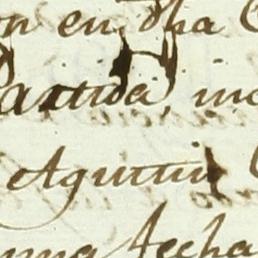 on en dha
Partida, inc
Agustin
fecha